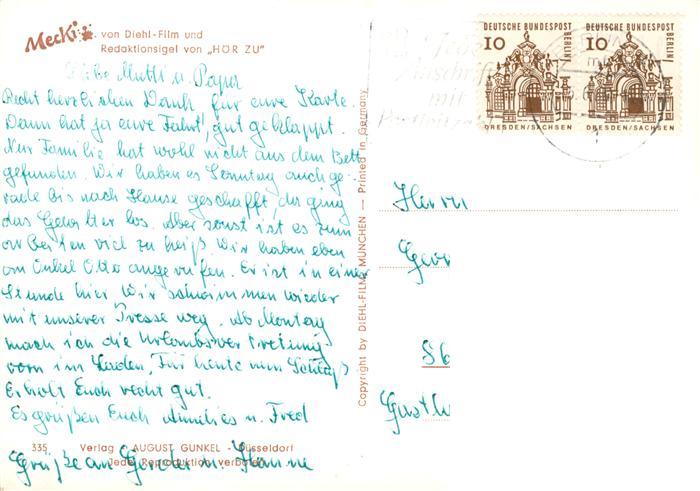 Mecki von Diehl-Film und
Redaktionsigel von „HÖR ZU"
Liebe Mutti u. Papa
Recht herzlichen Dank für eure Karte.
Dann hat ja eure Fahrt gut geklappt.
Nur Familie hat wohl nicht aus dem Bett
gefunden. Wir haben es Sonntag auch ge-
rade bis nach Hause geschafft, da ging
das Gewitter los. Aber sonst ist es zum
arbeiten viel zu heiß. Wir haben eben
om Onkel Otto angerufen. Er ist in einer
Stunde hier. Wir schwimmen wieder
mit unserer Presse weg. Ab Montag
mach ich die Urlaubsvertretung
vorn im Laden. Für heute nun Schluß
Erholt Euch recht gut.
Es grüßen Euch Annelies u. Fred
335 Verlag AUGUST GUNKEL - Düsseldorf
Jede Reproduktion verboten
Grüße an Gerda u. Hanne
Copyright by DIEHL-FILM MÜNCHEN — Printed in Germany
DEUTSCHE BUNDESPOST
BERLIN
10
DRESDEN/SACHSEN
DEUTSCHE BUNDESPOST
BERLIN
10
DRESDEN/SACHSEN
Anschrift
mit
Herrn